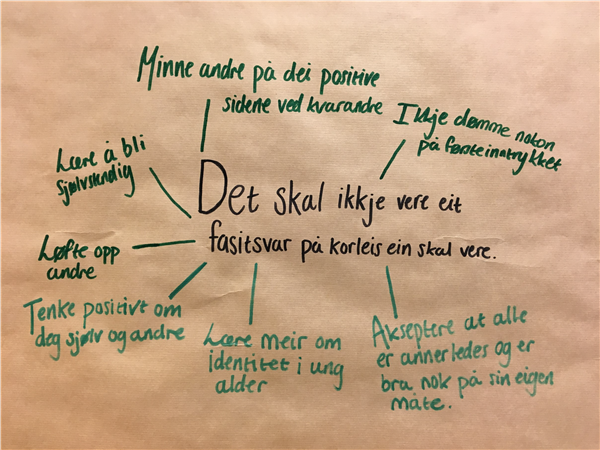 Minne andre på dei positive
sidene ved kvarandre
Ikkje dømme nokon
på førsteinntrykket
Lære å bli
sjølvstendig
Det skal ikkje vere eit
fasitsvar på korleis ein skal vere.
Løfte opp
andre
Tenke positivt om
deg sjølv og andre
Lære meir om
identitet i ung
alder
Akseptere at alle
er annerledes og er
bra nok på sin eigen
måte.